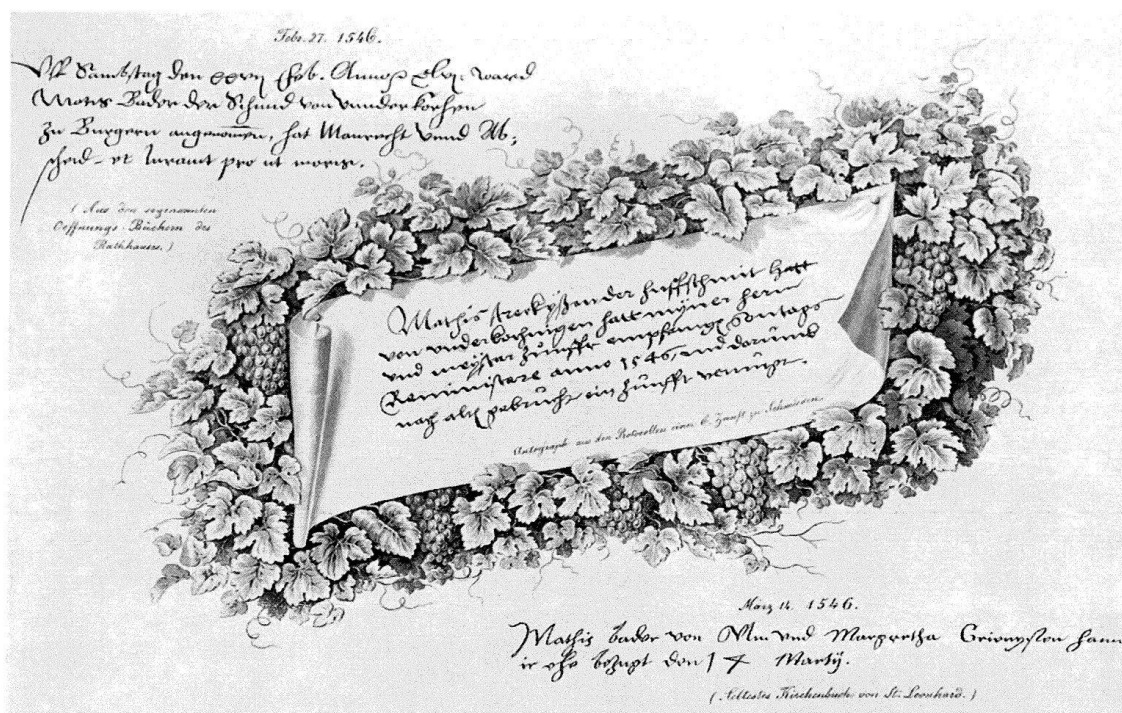 Febr. 27. 1546.
Uff Sambstag den xxvij Feb. Anno xlvj. ward
Matis Bader der Schmid von Underkochen
zu Burgern angenomen, hat Manrecht unnd Ab⸗
scheid et Iuravit pro ut moris.
(Aus den sogenannten
Oeffnungs-Büchern des
Rathhauses.)
Mathis der huffschmit hatt
von underkochingen hatt myner hern
und meyster zunfft empfangen Sontags
Reministare anno 1546 und darumb
nach altem gebrucht ein zunfft vernügt.
Autograph aus den Protocollen einer E. Zunft zu Schmieden.
März 14. 1546.
Mathis bader von Ulm und Margretha hann
ir ehe bezügt den 14 Martij.
(Aeltestes Kirchenbuch von St. Leonhard.)